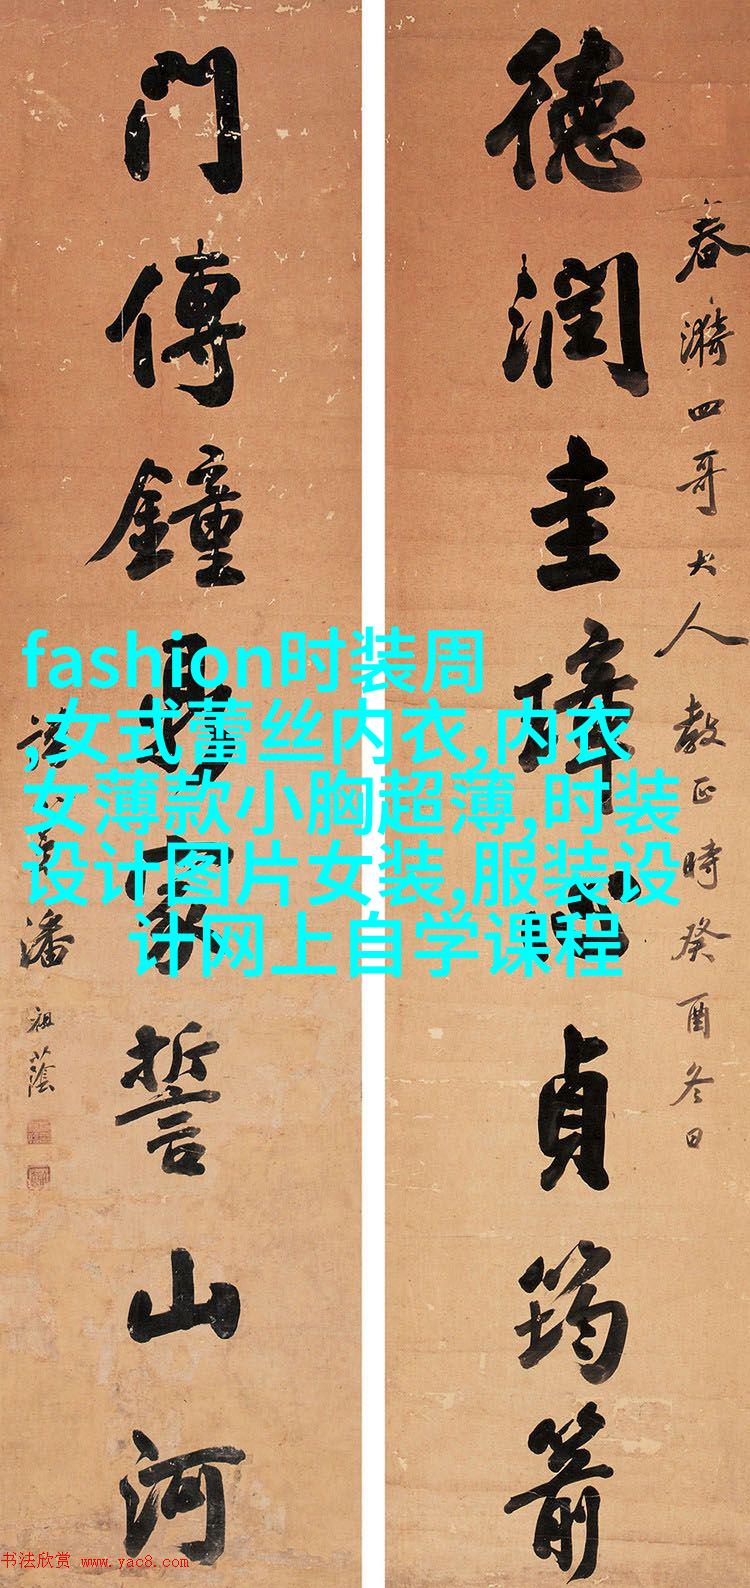 春漪四哥大人教正時癸酉冬日
德潤圭璋心貞筠箭
門傳鐘鼎家誓山河
潘祖蔭
fashion时装周
,女式蕾丝内衣,内衣
女薄款小胸超薄,时装
设计图片女装,服装设
计网上自学课程
书法欣赏 www.yac8.com